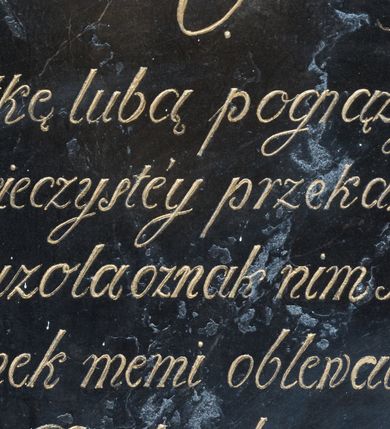 kę lubą pogrąż
ieczystéy przeka
uzola oznak nim
nek memi oblewa